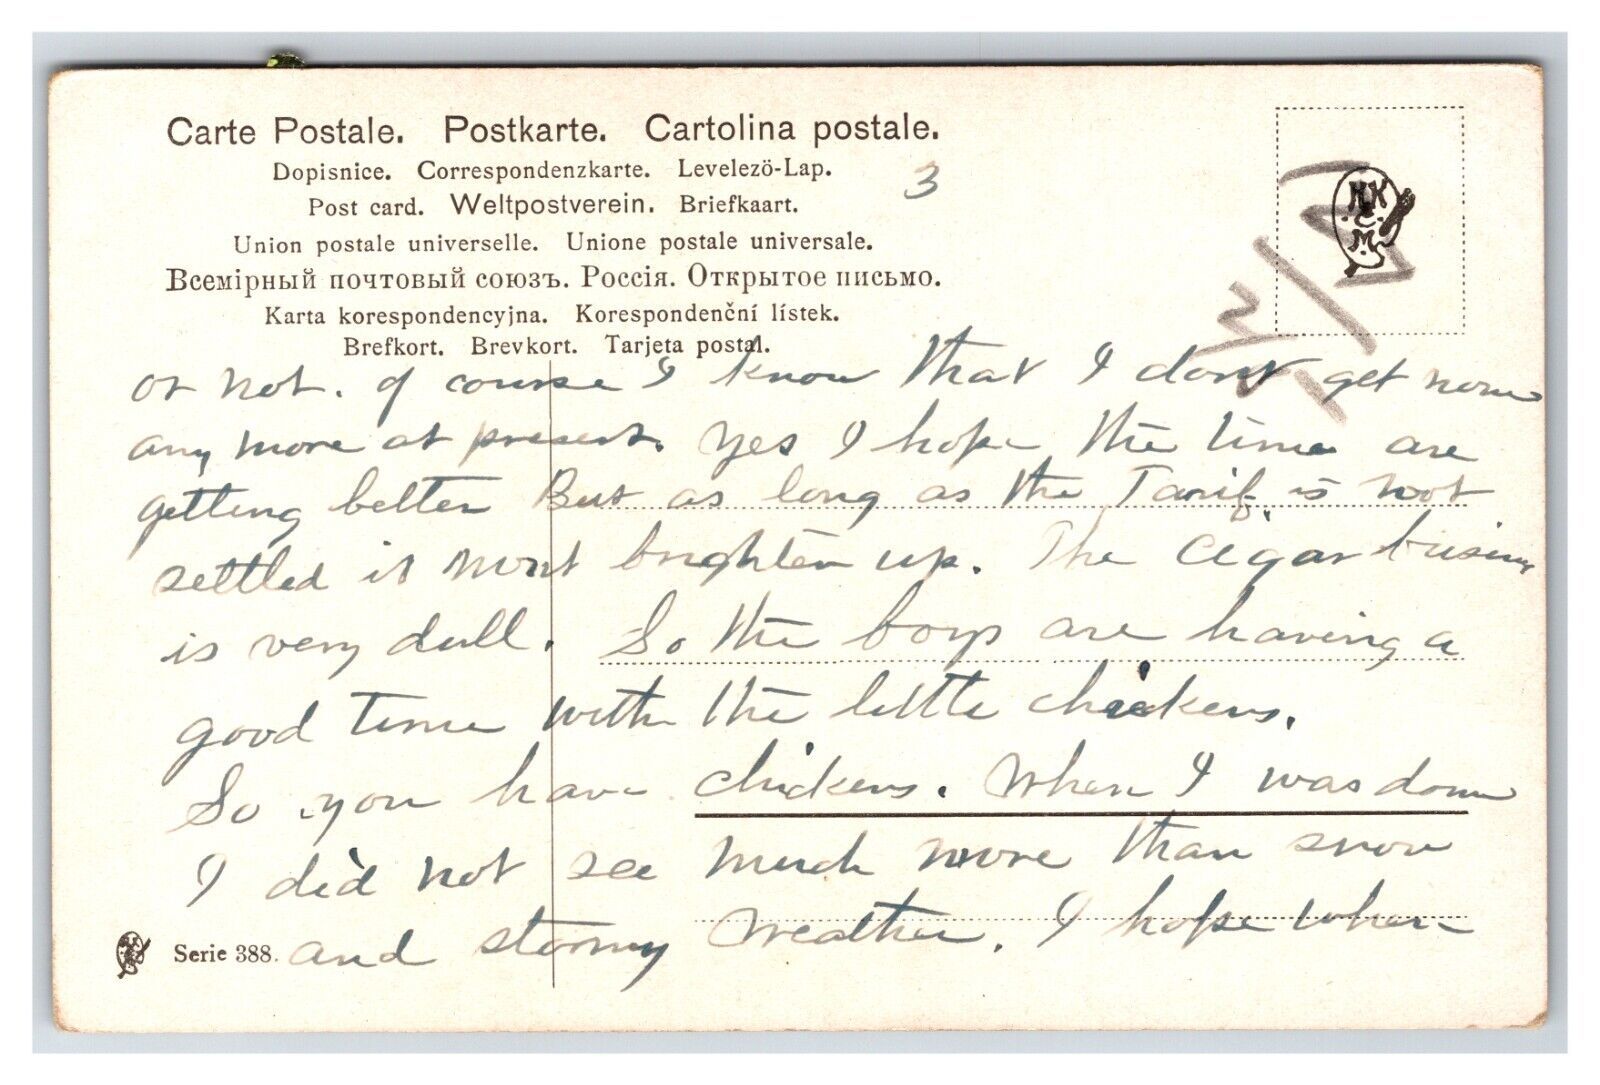 Carte Postale. Postkarte. Cartolina postale.
Dopisnice. Correspondenzkarte. Levelezö-Lap.
3
Post card. Weltpostverein. Briefkaart.
Union postale universelle. Unione postale universale.
Всемірный почтовый союзъ. Россія. Открытое письмо.
Karta korespondencyjna. Korespondenční lístek.
Brefkort. Brevkort. Tarjeta postal.
or not. of course I know that I dont get home
any more at present. Yes I hope the time are
getting better But as long as the Tarif is not
settled it wont brighten up. The Cigar busines
is very dull. So the boys are having a
good time with the little chickens.
So you have chickens. When I was down
I did not see much more than snow
and stormy weather. I hope when
Serie 388.
M K
M